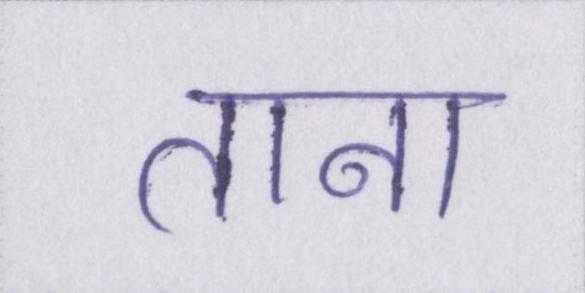 ताना